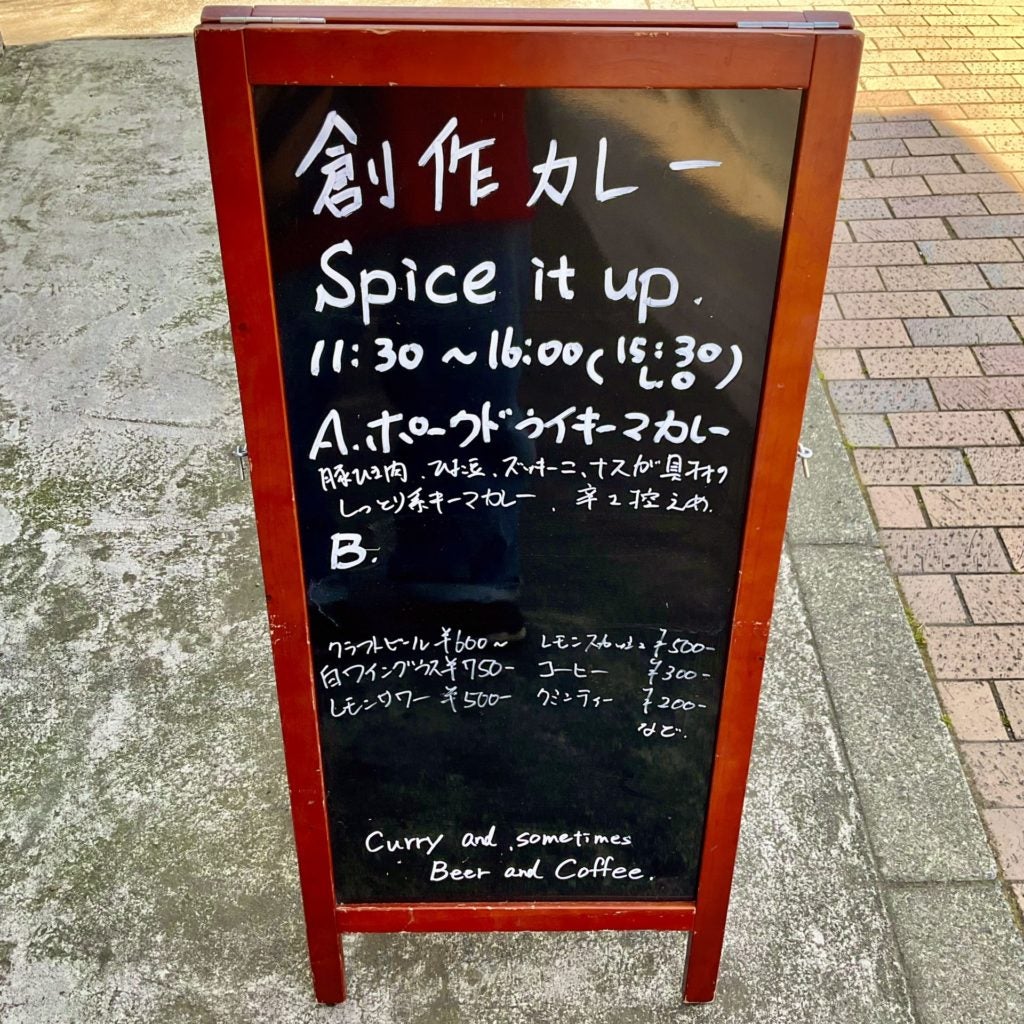 創作カレー
Spice it up.
11:30～16:00(15:30 L.O)
A.ポークドライキーマカレー
豚ひき肉、ひよこ豆、ズッキーニ、ナスが具材の
しっとり系キーマカレー、辛さ控えめ.
B.
クラフトビール ¥600〜 レモンスカッシュ ¥500-
白ワイングラス¥750- コーヒー ¥300-
レモンサワー ¥500- クミンティー ¥200-
など.
Curry and sometimes
Beer and Coffee.